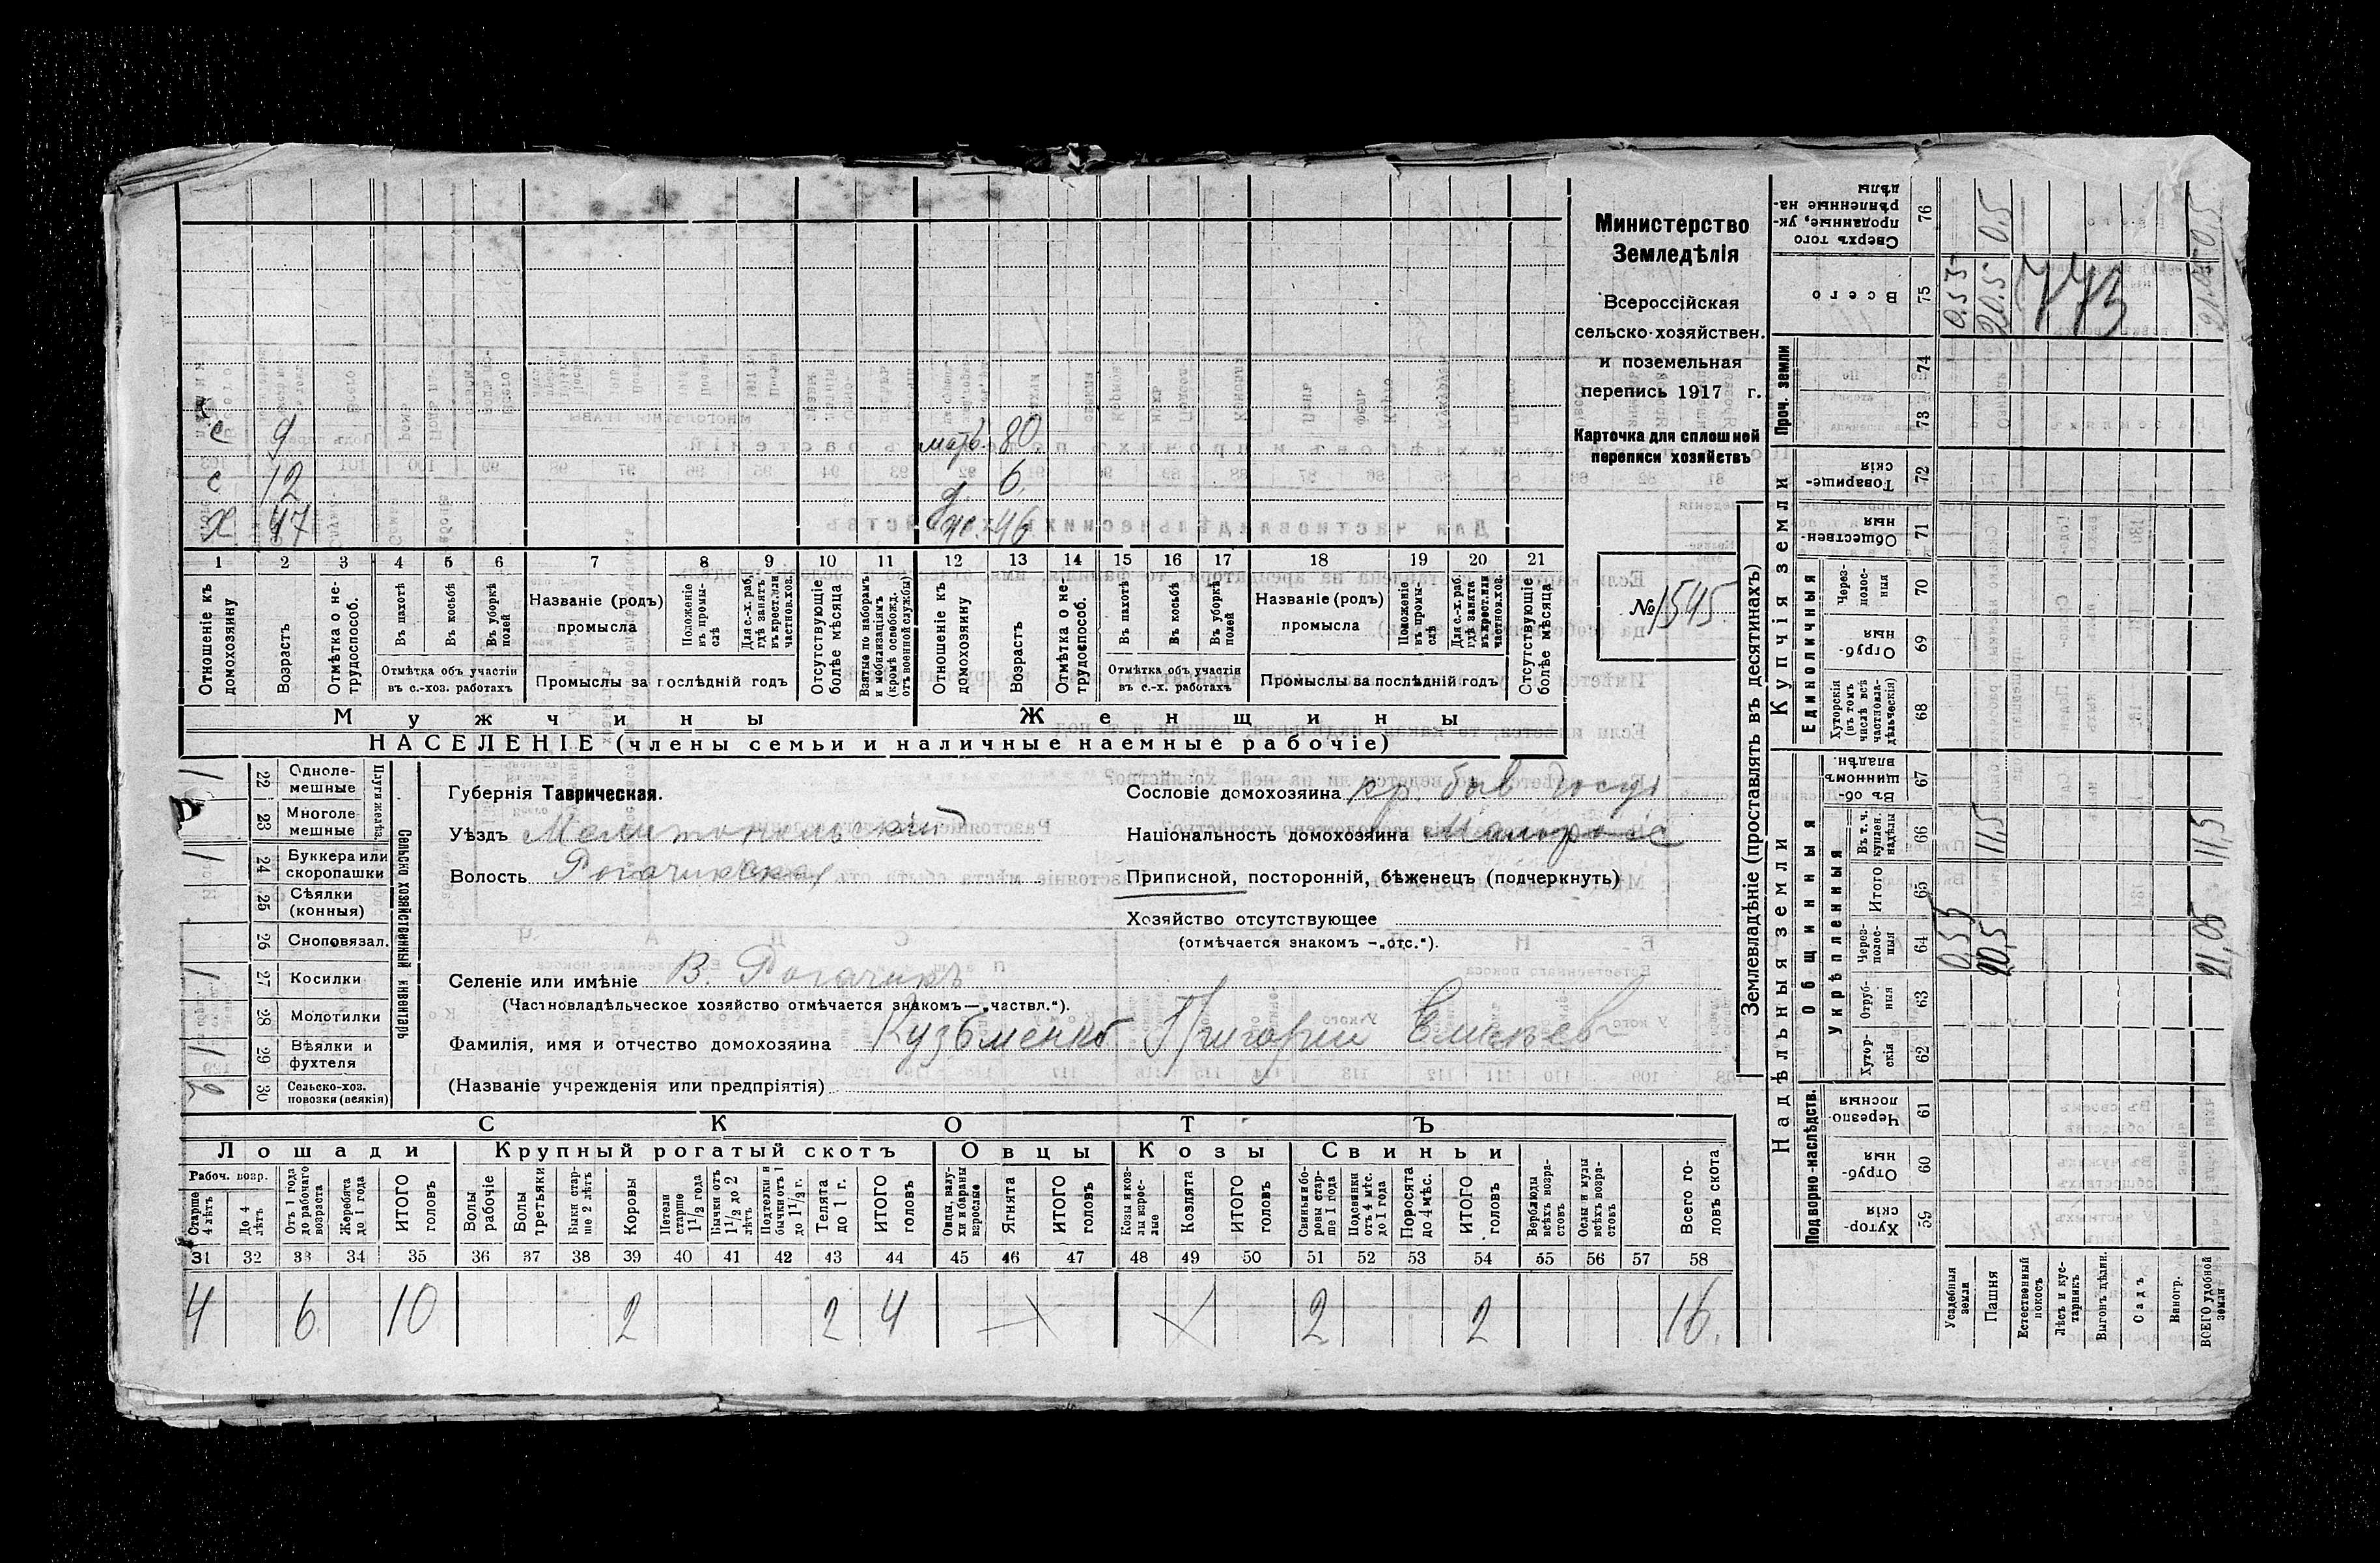 Министерство
Земледѣлія
Всероссійская
сельско-хозяйствен.
и поземельная
перепись 1917 г.
Карточка для сплошной
переписи хозяйствъ
№ 1545.
с 9 матъ 80
с 12 д. 6
Х 47 ж. 46
1 2 3 4 5 6 7 8 9 10 11 12 13 14 15 16 17 18 19 20 21
Отношеніе къ домохозяину
Возрастъ
Отмѣтка о не-трудоспособ.
Въ пахотѣ
Въ косьбѣ
Въ уборкѣ полей
Отмѣтка объ участіи въ с.-хоз. работахъ
Названіе (родъ) промысла
Положеніе въ промы-слѣ
Для с.-х. раб. гдѣ занятъ въ крест. или частнов. хоз.
Промыслы за послѣдній годъ
Отсутствующіе болѣе мѣсяца
Взятые по наборамъ и мобилизаціямъ (кромѣ освобожд. отъ военной службы)
Отношеніе къ домохозяину
Возрастъ
Отмѣтка о не-трудоспособ.
Въ пахотѣ
Въ косьбѣ
Въ уборкѣ полей
Отмѣтка объ участіи въ с.-х. работахъ
Названіе (родъ) промысла
Положеніе въ промы-слѣ
Для с.-х. раб. гдѣ занята въ крест. или частнов. хоз.
Промыслы за послѣдній годъ
Отсутствующіе болѣе мѣсяца
Мужчины Женщины
НАСЕЛЕНІЕ (члены семьи и наличные наемные рабочіе)
Сельско хозяйственный инвентарь
Плуги желѣз.
22 Одноле-мешные 1
23 Многоле мешные
24 Буккера или скоропашки 1
25 Сѣялки (конныя)
26 Сноповязал.
27 Косилки 1
28 Молотилки
29 Вѣялки и фухтеля 1
30 Сельско-хоз. повозки (всякія) 2
Губернія Таврическая.
Уѣздъ Мелитопольскій
Волость Рогачикская
Селеніе или имѣніе В. Рогачикъ
(Частновладѣльческое хозяйство отмѣчается знакомъ—„частвл.“).
Фамилія, имя и отчество домохозяина Кузьменко Григорій Елисѣев
(Названіе учрежденія или предпріятія)
Сословіе домохозяина кр. быв госуд
Національность домохозяина Малоросс
Приписной, посторонній, бѣженецъ (подчеркнуть)
Хозяйство отсутствующее
(отмѣчается знакомъ —„отс.“).
СКОТЪ
Лошади Крупный рогатый скотъ Овцы Козы Свиньи
Рабоч. возр.
Старше 4 лѣтъ
До 4 лѣтъ
Отъ 1 года до рабочаго возраста
Жеребята до 1 года
ИТОГО головъ
Волы рабочіе
Волы третьяки
Быки стар-ше 2 лѣтъ
Коровы
Нетели старше 1 1/2 года
Бычки отъ 1 1/2 до 2 лѣтъ
Подтелки и бычки отъ 1 до 1 1/2 г.
Телята до 1 г.
ИТОГО головъ
Овцы, валу-хи и бараны взрослые
Ягнята
ИТОГО головъ
Козы и коз-лы взрос-лые
Козлята
ИТОГО головъ
Свиньи и бо-ровы стар-ше 1 года
Подсвинки отъ 4 мѣс. до 1 года
Поросята до 4 мѣс.
ИТОГО головъ
Верблюды всѣхъ возра-стовъ
Ослы и мулы всѣхъ возра-стовъ
Всего го-ловъ скота
31 32 33 34 35 36 37 38 39 40 41 42 43 44 45 46 47 48 49 50 51 52 53 54 55 56 57 58
4 6. 10 2 2 4 2 2 16.
Землевладѣніе (проставлять въ десятинахъ)
Надѣльныя земли Купчія земли Проч. земли
Подворно-наслѣдств.
Общинныя
Укрѣпленныя
Единоличныя
59 Хутор-скія
60 Отруб-ныя
61 Черезпо-лосныя
62 Хутор-скія
63 Отруб-ныя
64 Черезполос-ныя 0,55 20,5 21,05
65 Итого
66 Въ т. ч. куплен. надѣлы 11,5 11,5
67 Въ об-щинномъ владѣн.
68 Хуторскія (въ томъ числѣ всѣ частновла-дѣльческія)
69 Отруб-ныя
70 Через-полос-ныя
71 Обществен-ныя
72 Товарище-скія
73
74
75 Всего 0.55 20.5 21.05
76 Сверхъ того проданные, ук-рѣпленные на-дѣлы 0.5 0.5
773
Усадебныя земли
Пашня
Естественный покосъ
Лѣсъ и кус-тарникъ
Выгонъ цѣлин.
Садъ
Виногр.
ВСЕГО удобной земли